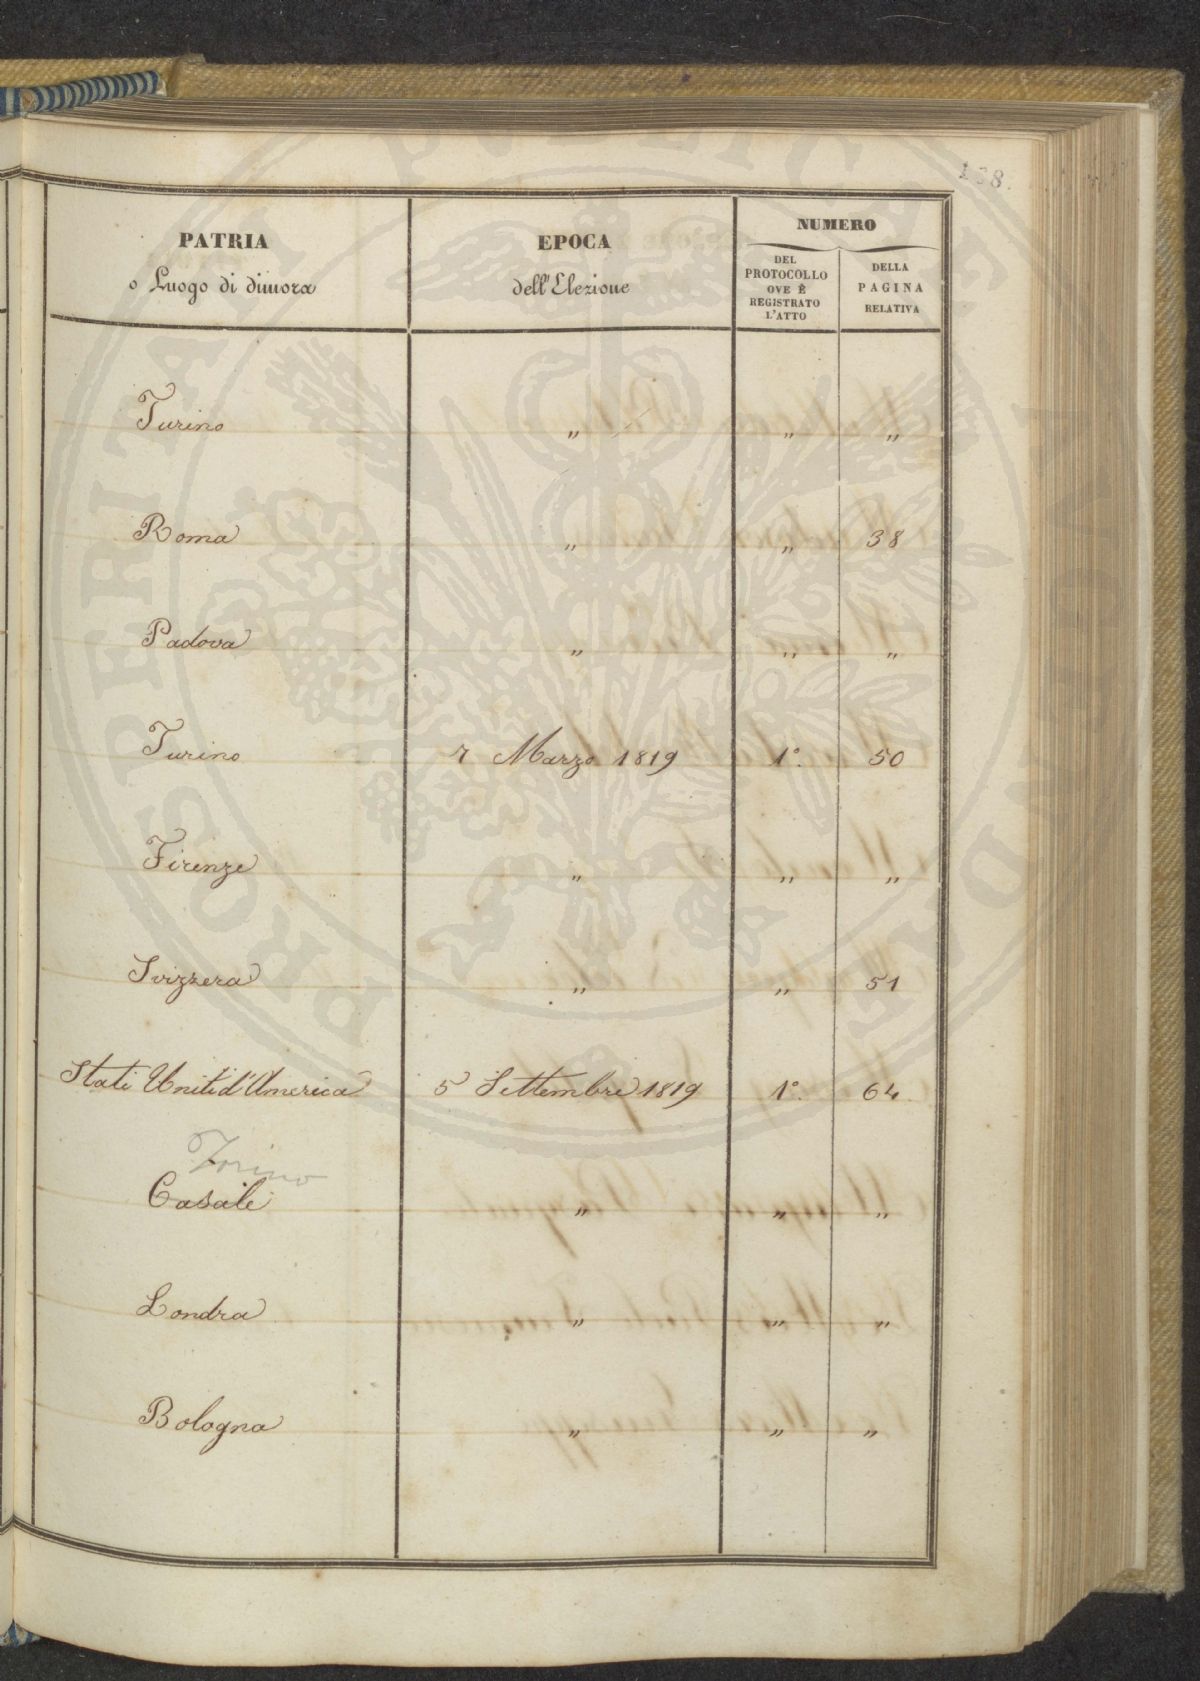 168.
PATRIA
o Luogo di dimora
EPOCA
dell'Elezione
NUMERO
DEL
PROTOCOLLO
OVE È
REGISTRATO
L'ATTO
DELLA
PAGINA
RELATIVA
Turino " " "
Roma " " 38
Padova " " "
Turino 7 Marzo 1819 1°. 50
Firenze " " "
Svizzera " " 51
Stati Uniti d'America 5 Settembre 1819 1°. 64.
Torino
Casale " " "
Londra " " "
Bologna " " "
PROSPERITATI PUBLICAE